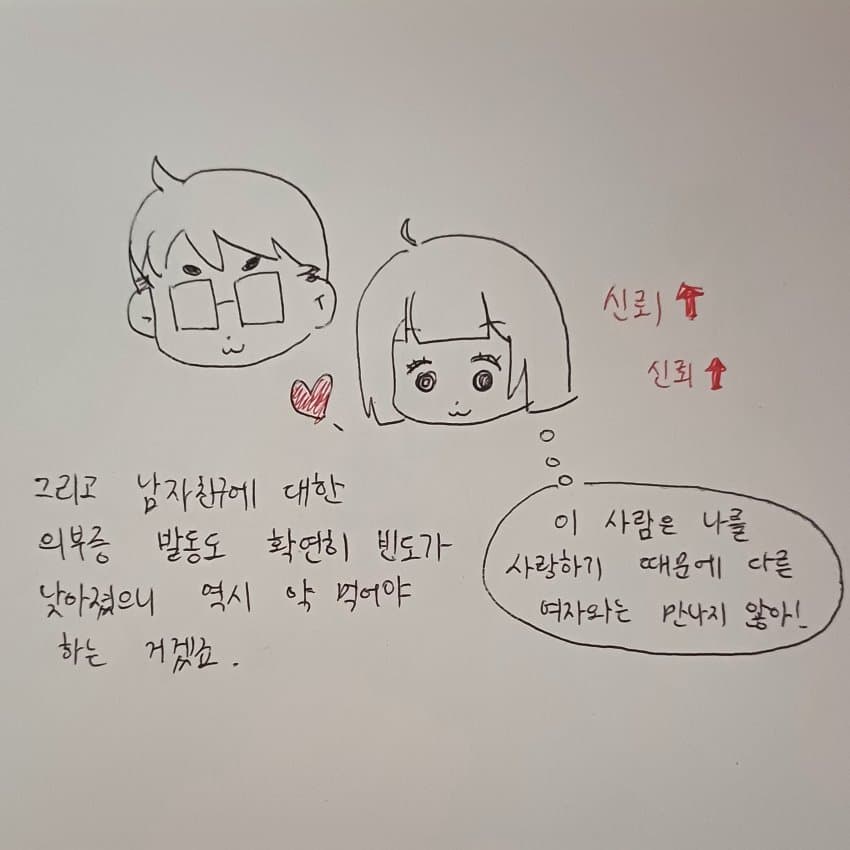 신뢰 ↑
신뢰 ↑
그리고 남자친구에 대한
의부증 발동도 확연히 빈도가
낮아졌으니 역시 약 먹어야
하는 거겠죠.
이 사람은 나를
사랑하기 때문에 다른
여자와는 만나지 않아!